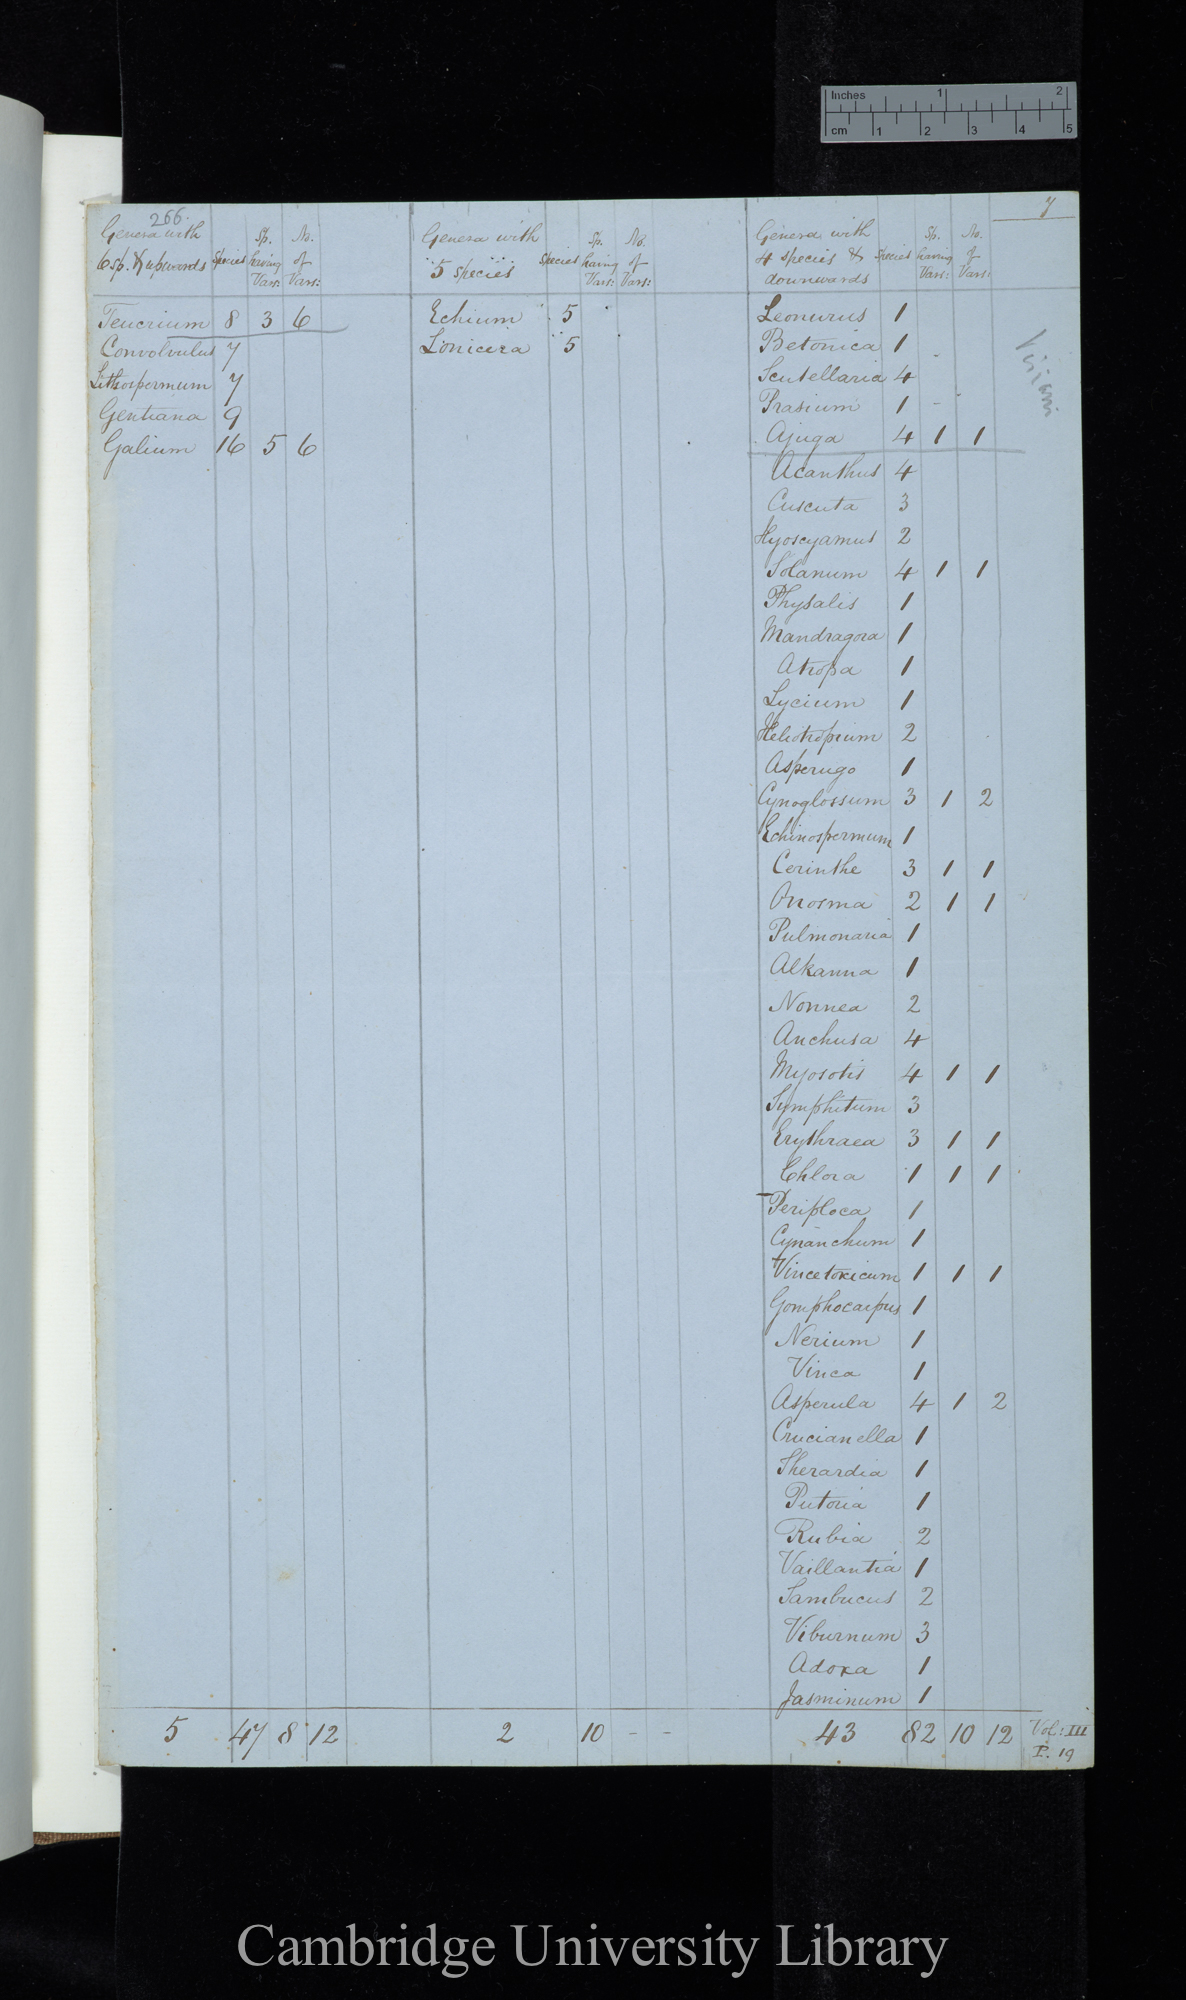 Inches 1 2
cm 1 2 3 4 5
266.
7
Genera with 6 sp. & upwards | Species | Sp. having Vars: | No. of Vars:
Genera with 5 species | Species | Sp. having Vars: | No. of Vars:
Genera with 4 species & downwards | Species | Sp. having Vars: | No. of Vars:
Teucrium 8 3 6
Convolvulus 7
Lithospermum 7
Gentiana 9
Galium 16 5 6
Echium 5
Lonicera 5
Leonurus 1
Betonica 1
Scutellaria 4
Prasium 1
Ajuga 4 1 1
Acanthus 4
Cuscuta 3
Hyoscyamus 2
Solanum 4 1 1
Physalis 1
Mandragora 1
Atropa 1
Lycium 1
Heliotropium 2
Asperugo 1
Cynoglossum 3 1 2
Echinospermum 1
Cerinthe 3 1 1
Onosma 2 1 1
Pulmonaria 1
Alkanna 1
Nonnea 2
Anchusa 4
Myosotis 4 1 1
Symphitum 3
Erythraea 3 1 1
Chlora 1 1 1
Periploca 1
Cynanchum 1
Vincetoxicum 1 1 1
Gomphocarpus 1
Nerium 1
Vinca 1
Asperula 4 1 2
Crucianella 1
Sherardia 1
Putoria 1
Rubia 2
Vaillantia 1
Sambucus 2
Viburnum 3
Adoxa 1
Jasminum 1
Visiani
5 47 8 12 2 10 - - 43 82 10 12 Vol: III
P. 19
Cambridge University Library